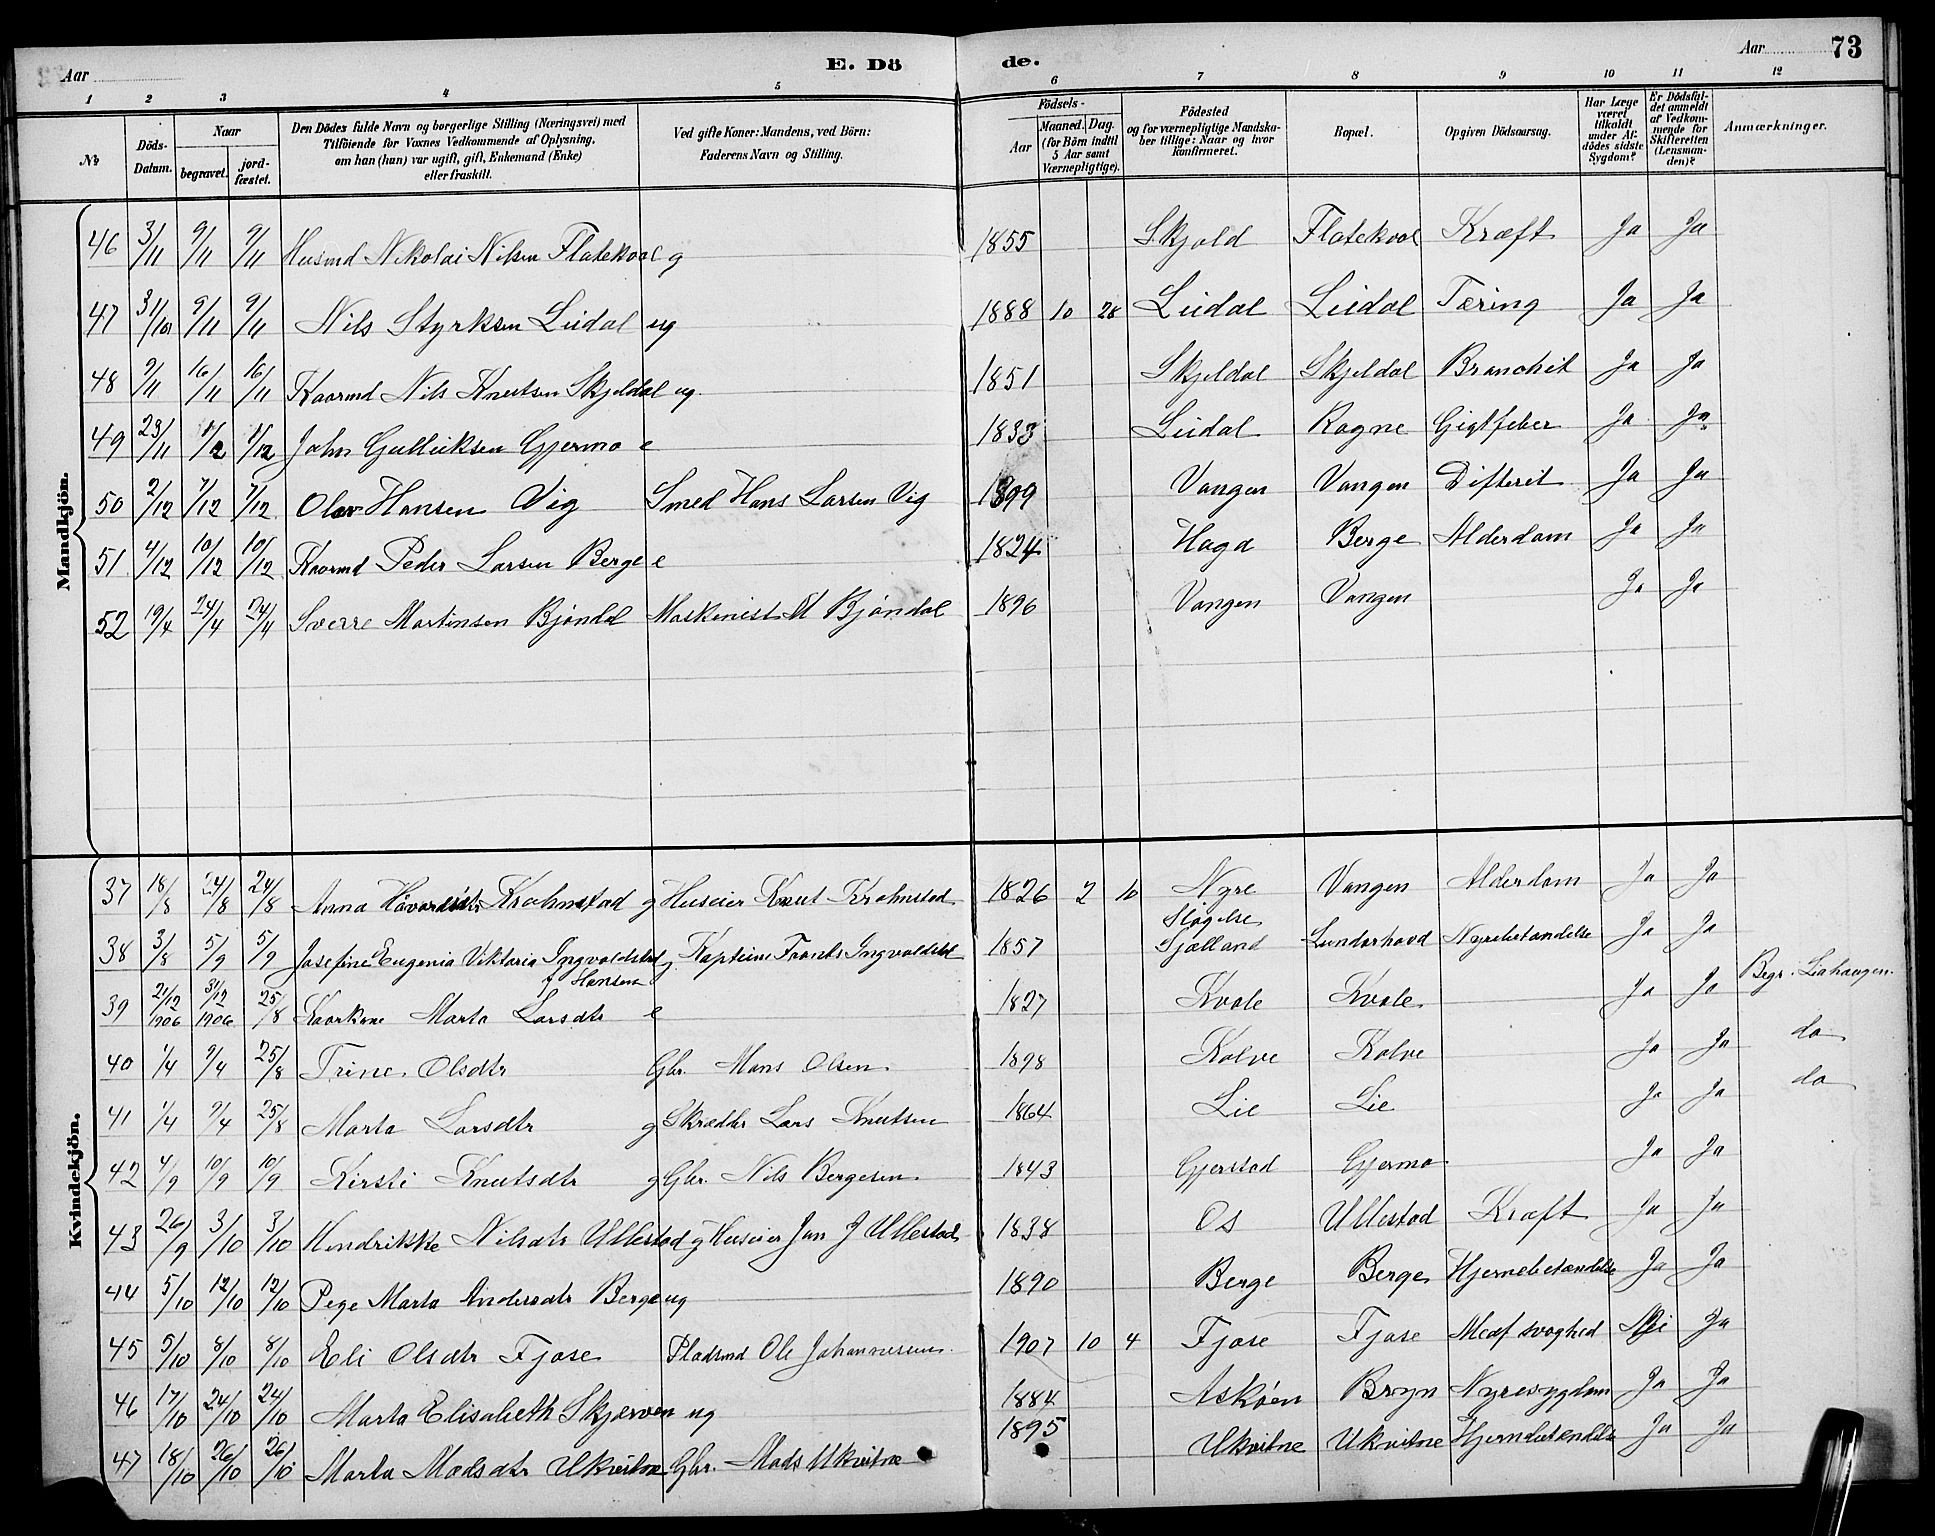 Aar
E. Dö
de.
Aar
73
1 2 3 4 5 6 7 8 9 10 11 12
No
Döds-Datum.
Naar
begravet.
jord-fæstet.
Den Dödes fulde Navn og borgerlige Stilling (Næringsvei) med
Tilföiende for Voxnes Vedkommende af Oplysning,
om han (hun) var ugift, gift, Enkemand (Enke)
eller fraskilt.
Ved gifte Koner: Mandens, ved Börn:
Faderens Navn og Stilling.
Födsels-
Aar
Maaned. Dag.
(for Börn indtil
5 Aar samt
Værnepligtige).
Födested
og for værnepligtige Mandska-
ber tillige: Naar og hvor
konfirmeret.
Bopæl.
Opgiven Dödsaarsag.
Har Læge
været
tilkaldt
under Af-
dödes sidste
Sygdom?
Er Dödsfal-
det anmeldt
af Vedkom-
mende for
Skifteretten
(Lensman-
den)?
Anmærkninger.
Mandkjön.
46 3/11 9/11 9/11 Husmd Nikolai Nilsen Flatekval g 1855 Skjold Flatekval Kræft Ja Ja
47 31/10 9/11 9/11 Nils Styrksen Lidal ug 1888 10 28 Lidal Lidal Tæring Ja Ja
48 9/11 16/11 16/11 Kaarmd Nils Knutsen Skjeldal ug. 1851 Skjeldal Skjeldal Bronchit Ja Ja
49 23/11 1/12 1/12 John Gulleiksen Gjermo e 1833 Lidal Rogne Gigtfeber Ja Ja
50 2/12 7/12 7/12 Olav Hansen Vig Smed Hans Larsen Vig 1899 Vangen Vangen Difterit Ja Ja
51 4/12 10/12 10/12 Kaarmd Peder Larsen Berge e 1824 Haga Berge Alderdom Ja Ja
52 19/4 24/4 24/4 Sverre Martinsen Bjöndal Maskinist M Bjöndal 1896 Vangen Vangen Ja Ja
Kvindekjön.
37 18/8 24/8 24/8 Anna Haavardsdtr Krahnstad g Huseier Knut Krahnstad 1826 2 10 Nyre Vangen Alderdom Ja Ja
38 3/8 5/9 5/9 Josefine Eugenia Viktoria Ingvaldstad g. Kaptein Frants Ingvaldstad 1857 Slagelse Sjælland Lundarhovd Nyrebetændelse Ja Ja
f. Hansen
39 21/12 1906 31/12 1906 25/8 Kaarkone Marta Larsdtr e 1827 Kvale Kvale Ja Ja Begr. Liahaugen
40 1/4 9/4 25/8 Trine Olsdtr Gbr. Mons Olsen 1898 Kolve Kolve Ja Ja do
41 1/4 9/4 25/8 Marta Larsdtr g Skrædder Lars Knutsen 1864 Lie Lie Ja Ja do
42 4/9 10/9 10/9 Kirsti Knutsdtr g Gbr. Nils Bergesen 1843 Gjerstad Gjermo Ja Ja
43 26/9 3/10 3/10 Hendrikke Nilsdtr Ullestad g Huseier Jan J Ullestad 1838 Os Ullestad Kræft Ja Ja
44 5/10 12/10 12/10 Pege Marta Andersdtr Berge ug 1890 Berge Berge Hjernebetændelse Ja Ja
45 5/10 8/10 8/10 Eli Olsdtr Fjose Pladsmd Ole Johannesen 1907 10 4 Fjose Fjose Medf svaghed Nei Ja
46 17/10 24/10 24/10 Marta Elisabeth Skjerven ug 1884 Asköen Bryn Nyresygdom Ja Ja
47 18/10 26/10 26/10 Marta Madsdtr Ukvitne Gbr. Mads Ukvitne 1895 Ukvitne Ukvitne Hjernebetændelse Ja Ja